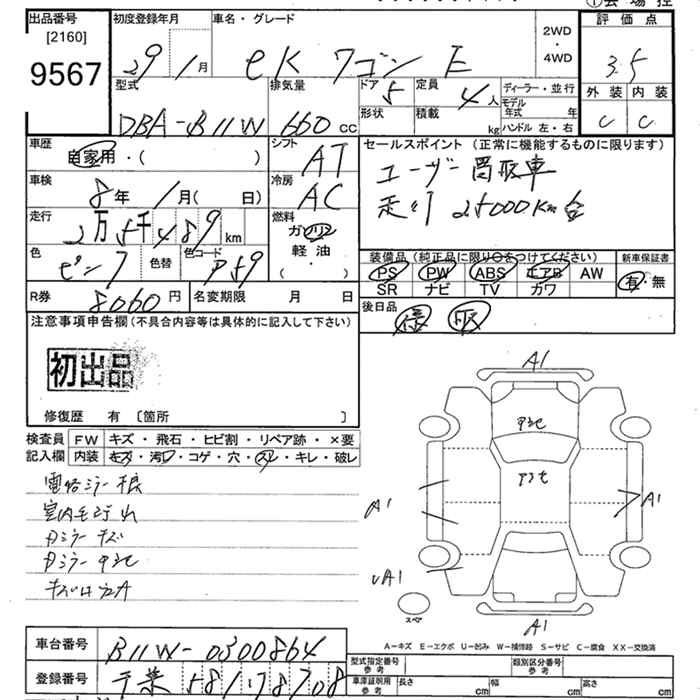 出品番号
[2160]
9567
初度登録年月
29 1月
車名・グレード
eK ワゴン E
2WD
・
4WD
評価点
3.5
外装 内装
C C
型式
DBA-B11W
排気量
660 cc
ドア
5
定員
4人
形状
積載
kg
ディーラー・並行
モデル年式 年
ハンドル 左・右
車歴
自家用・( )
シフト
AT
車検
8年 1月( 日)
冷房
AC
走行
2万5千489km
燃料
ガソリン
軽油
( )
色
ピンク
色替
色コード
P59
R券
8060円
名変期限 月 日
セールスポイント(正常に機能するものに限ります)
ユーザー買取車
走行 25000Km台
装備品(純正品に限り○をつけてください)
PS PW ABS エアB AW
SR ナビ TV カワ
新車保証書
有・無
後日品
注意事項申告欄(不具合内容等は具体的に記入して下さい)
初出品
修復歴 有 〔箇所 〕
検査員記入欄
FW キズ・飛石・ヒビ割・リペア跡・×要
内装 キズ・汚レ・コゲ・穴・スレ・キレ・破レ
A1
A1
A1
A1
スペア
A−キズ E−エクボ U−凹み W−補修跡 S−サビ C−腐食 XX−交換済
車台番号
B11W-0300864
登録番号
千葉 581
型式指定番号
参考
類別区分番号
参考
車庫証明用
参考
長さ cm
幅 cm
高さ cm